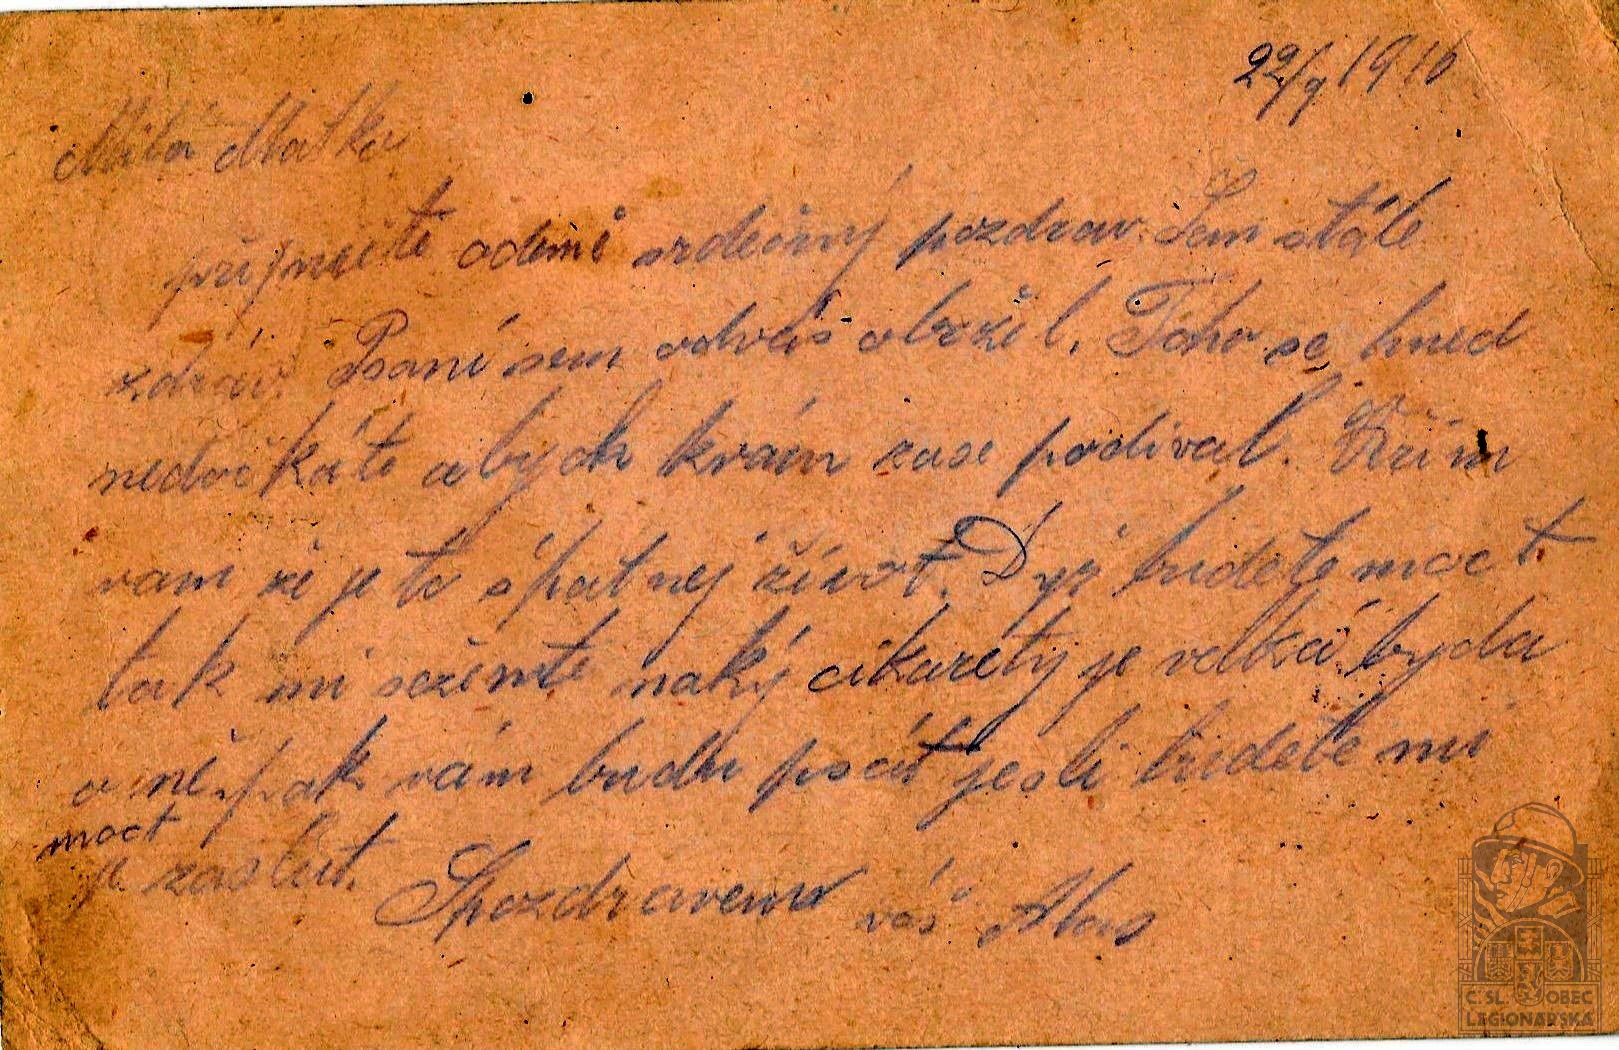 22/9 1916
Milá Matko
přijměte odemě srdečný pozdrav. Sem stále
zdráv. Psaní sem odvás obržel. Toho se hned
nedočkáte abych kvám zase podíval. Věřim
vam že je to špatnej život. Dyž budete moct.
tak mi sežente naký cikarety je velká byda
o ně. pak vám budu psát jesli budete mi
moct
je zaslat.
Spozdravem váš Alois
Č. SL. OBEC
LEGIONÁŘSKÁ